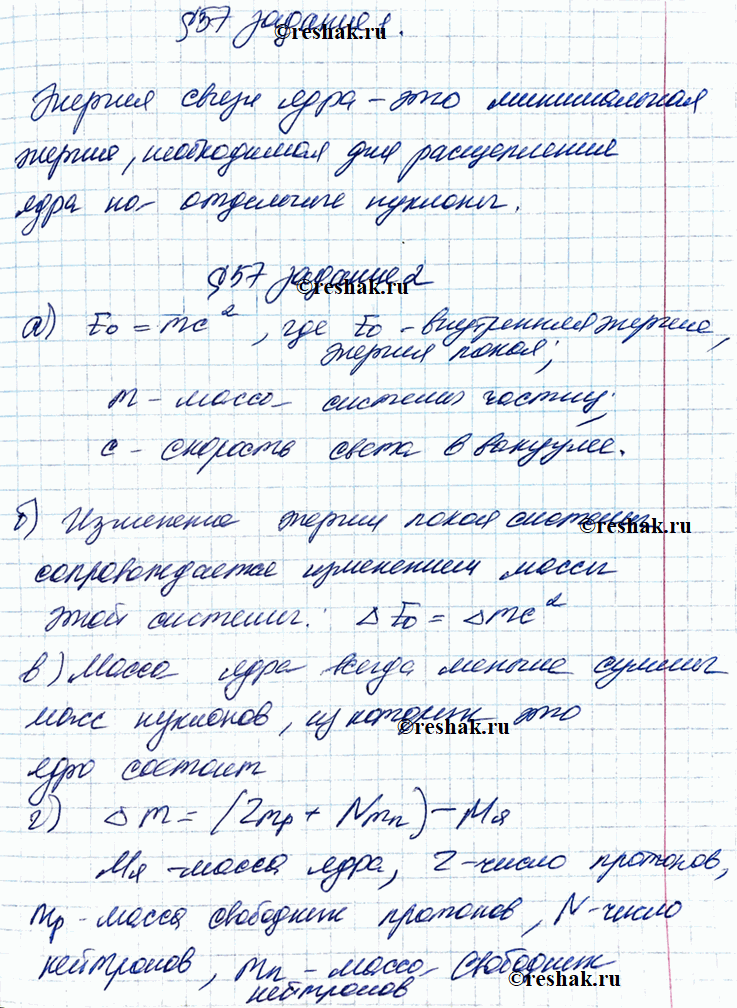 §57 задание 1.
©reshak.ru
Энергия связи ядра – это минимальная
энергия, необходимая для расщепления
ядра на отдельные нуклоны.
§57 задание 2
©reshak.ru
а) E₀ = mc², где E₀ - внутренняя энергия,
энергия покоя;
m - масса системы частиц;
c - скорость света в вакууме.
б) Изменение энергии покоя системы
©reshak.ru
сопровождается изменением массы
этой системы: ΔE₀ = Δmc²
в) Масса ядра всегда меньше суммы
масс нуклонов, из которых это
©reshak.ru
ядро состоит
г) Δm = (Zmp + Nmn) - Mя
Mя - масса ядра, Z - число протонов,
mp - масса свободных протонов, N - число
нейтронов, mn - масса свободных
нейтронов